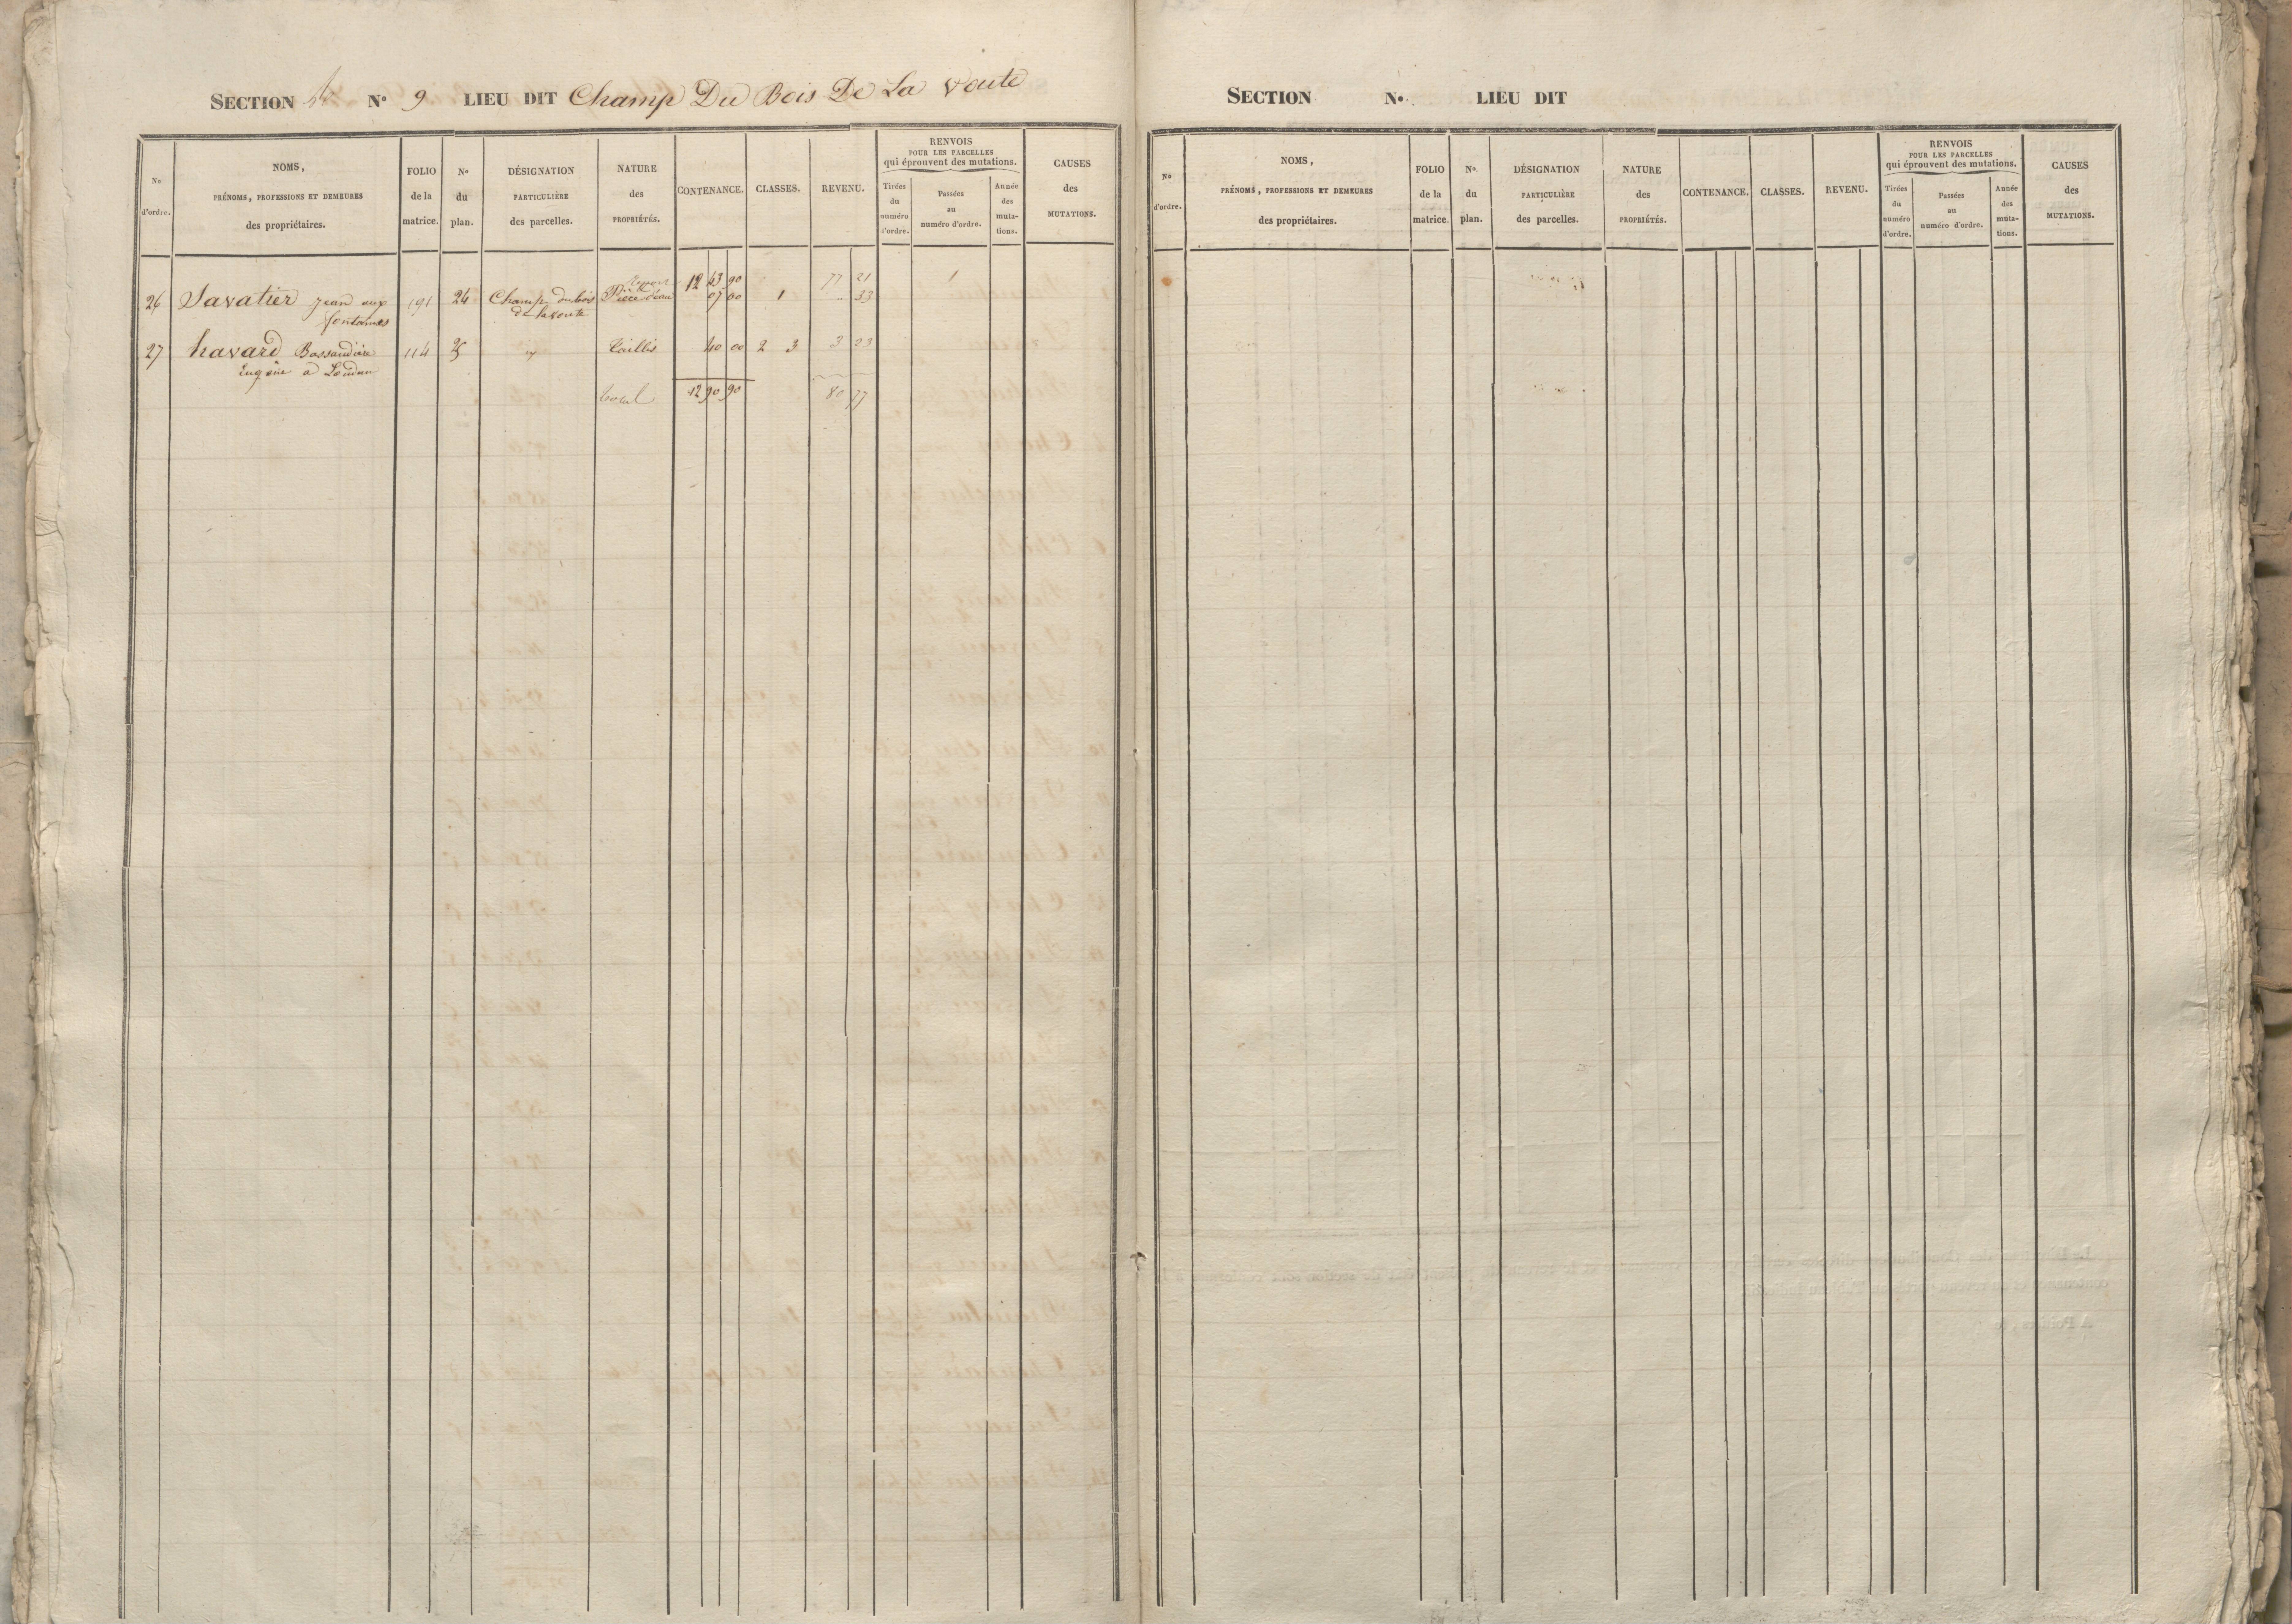 SECTION N° 9 LIEU DIT Champ Du Bois De La Voute
N° d'ordre.
NOMS,
PRÉNOMS, PROFESSIONS ET DEMEURES
des propriétaires.
FOLIO
de la
matrice.
N°
du
plan.
DÉSIGNATION
PARTICULIÈRE
des parcelles.
NATURE
des
PROPRIÉTÉS.
CONTENANCE.
CLASSES.
REVENU.
RENVOIS
POUR LES PARCELLES
qui éprouvent des mutations.
Tirées
du
numéro
d'ordre.
Passées
au
numéro d'ordre.
Année
des
muta-
tions.
CAUSES
des
MUTATIONS.
Report 12 43 90 77 21
26 Savatier Jean aux 191 24 Champ du bois Pièce d'eau 07 00 1 .. 33
fontaines de la voute
27 havard Bassaudière 114 25 id Taillis 40 00 2 3 3 23
Eugène a Loudun
Total 12 90 90 80 77
SECTION N° LIEU DIT
N°
d'ordre.
NOMS,
PRÉNOMS, PROFESSIONS ET DEMEURES
des propriétaires.
FOLIO
de la
matrice.
N°.
du
plan.
DÉSIGNATION
PARTICULIÈRE
des parcelles.
NATURE
des
PROPRIÉTÉS.
CONTENANCE.
CLASSES.
REVENU.
RENVOIS
POUR LES PARCELLES
qui éprouvent des mutations.
Tirées
du
numéro
d'ordre.
Passées
au
numéro d'ordre.
Année
des
muta-
tions.
CAUSES
des
MUTATIONS.